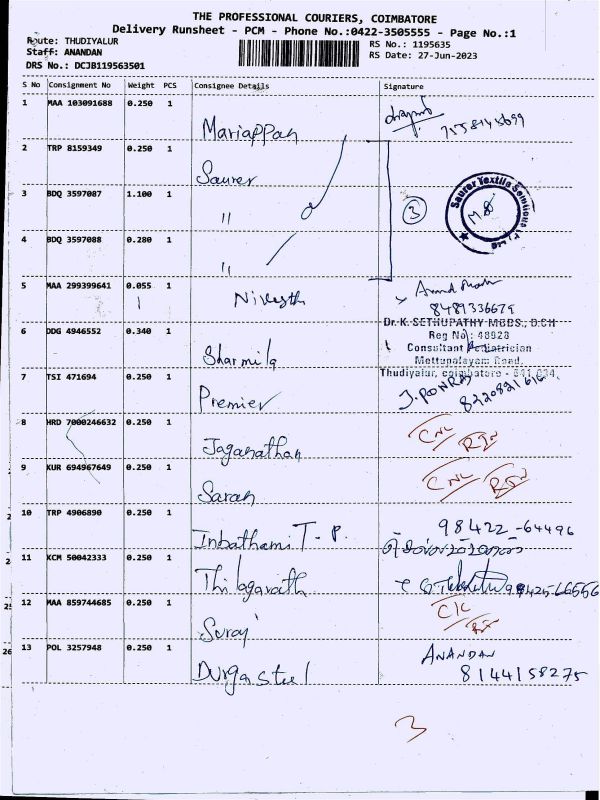 THE PROFESSIONAL COURIERS, COIMBATORE
Delivery Runsheet - PCM - Phone No.:0422-3505555 - Page No.:1
Route: THUDIYALUR
Staff: ANANDAN
DRS No.: DCJB119563501
RS No.: 1195635
RS Date: 27-Jun-2023
S No Consignment No Weight PCS Consignee Details Signature
1 MAA 103091688 0.250 1 Mariappan
2 TRP 8159349 0.250 1 Saurer
3 BDQ 3597087 1.100 1 "
3
Saurer Textile Solutions
4 BDQ 3597088 0.280 1 "
5 MAA 299399641 0.055 1 Nivesth
8489336679
6 DDG 4946552 0.340 1 Sharmila
Dr. K. SETHUPATHY MBBS., D.CH
Reg No.: 48928
Consultant Pediatrician
Mettupalayam Road,
Thudiyalur, coimbatore - 641 034.
7 TSI 471694 0.250 1 Premier J. PONRAJ
8220821616
8 HRD 7000246632 0.250 1 Jaganathan
9 KUR 694967649 0.250 1 Saran
10 TRP 4906890 0.250 1 Inbathami T. P. 98422-64496
11 KCM 50042333 0.250 1 Thilagavath
12 MAA 859744685 0.250 1 Suraj
13 POL 3257948 0.250 1 Durga Steel ANANDAN
8144158275
3